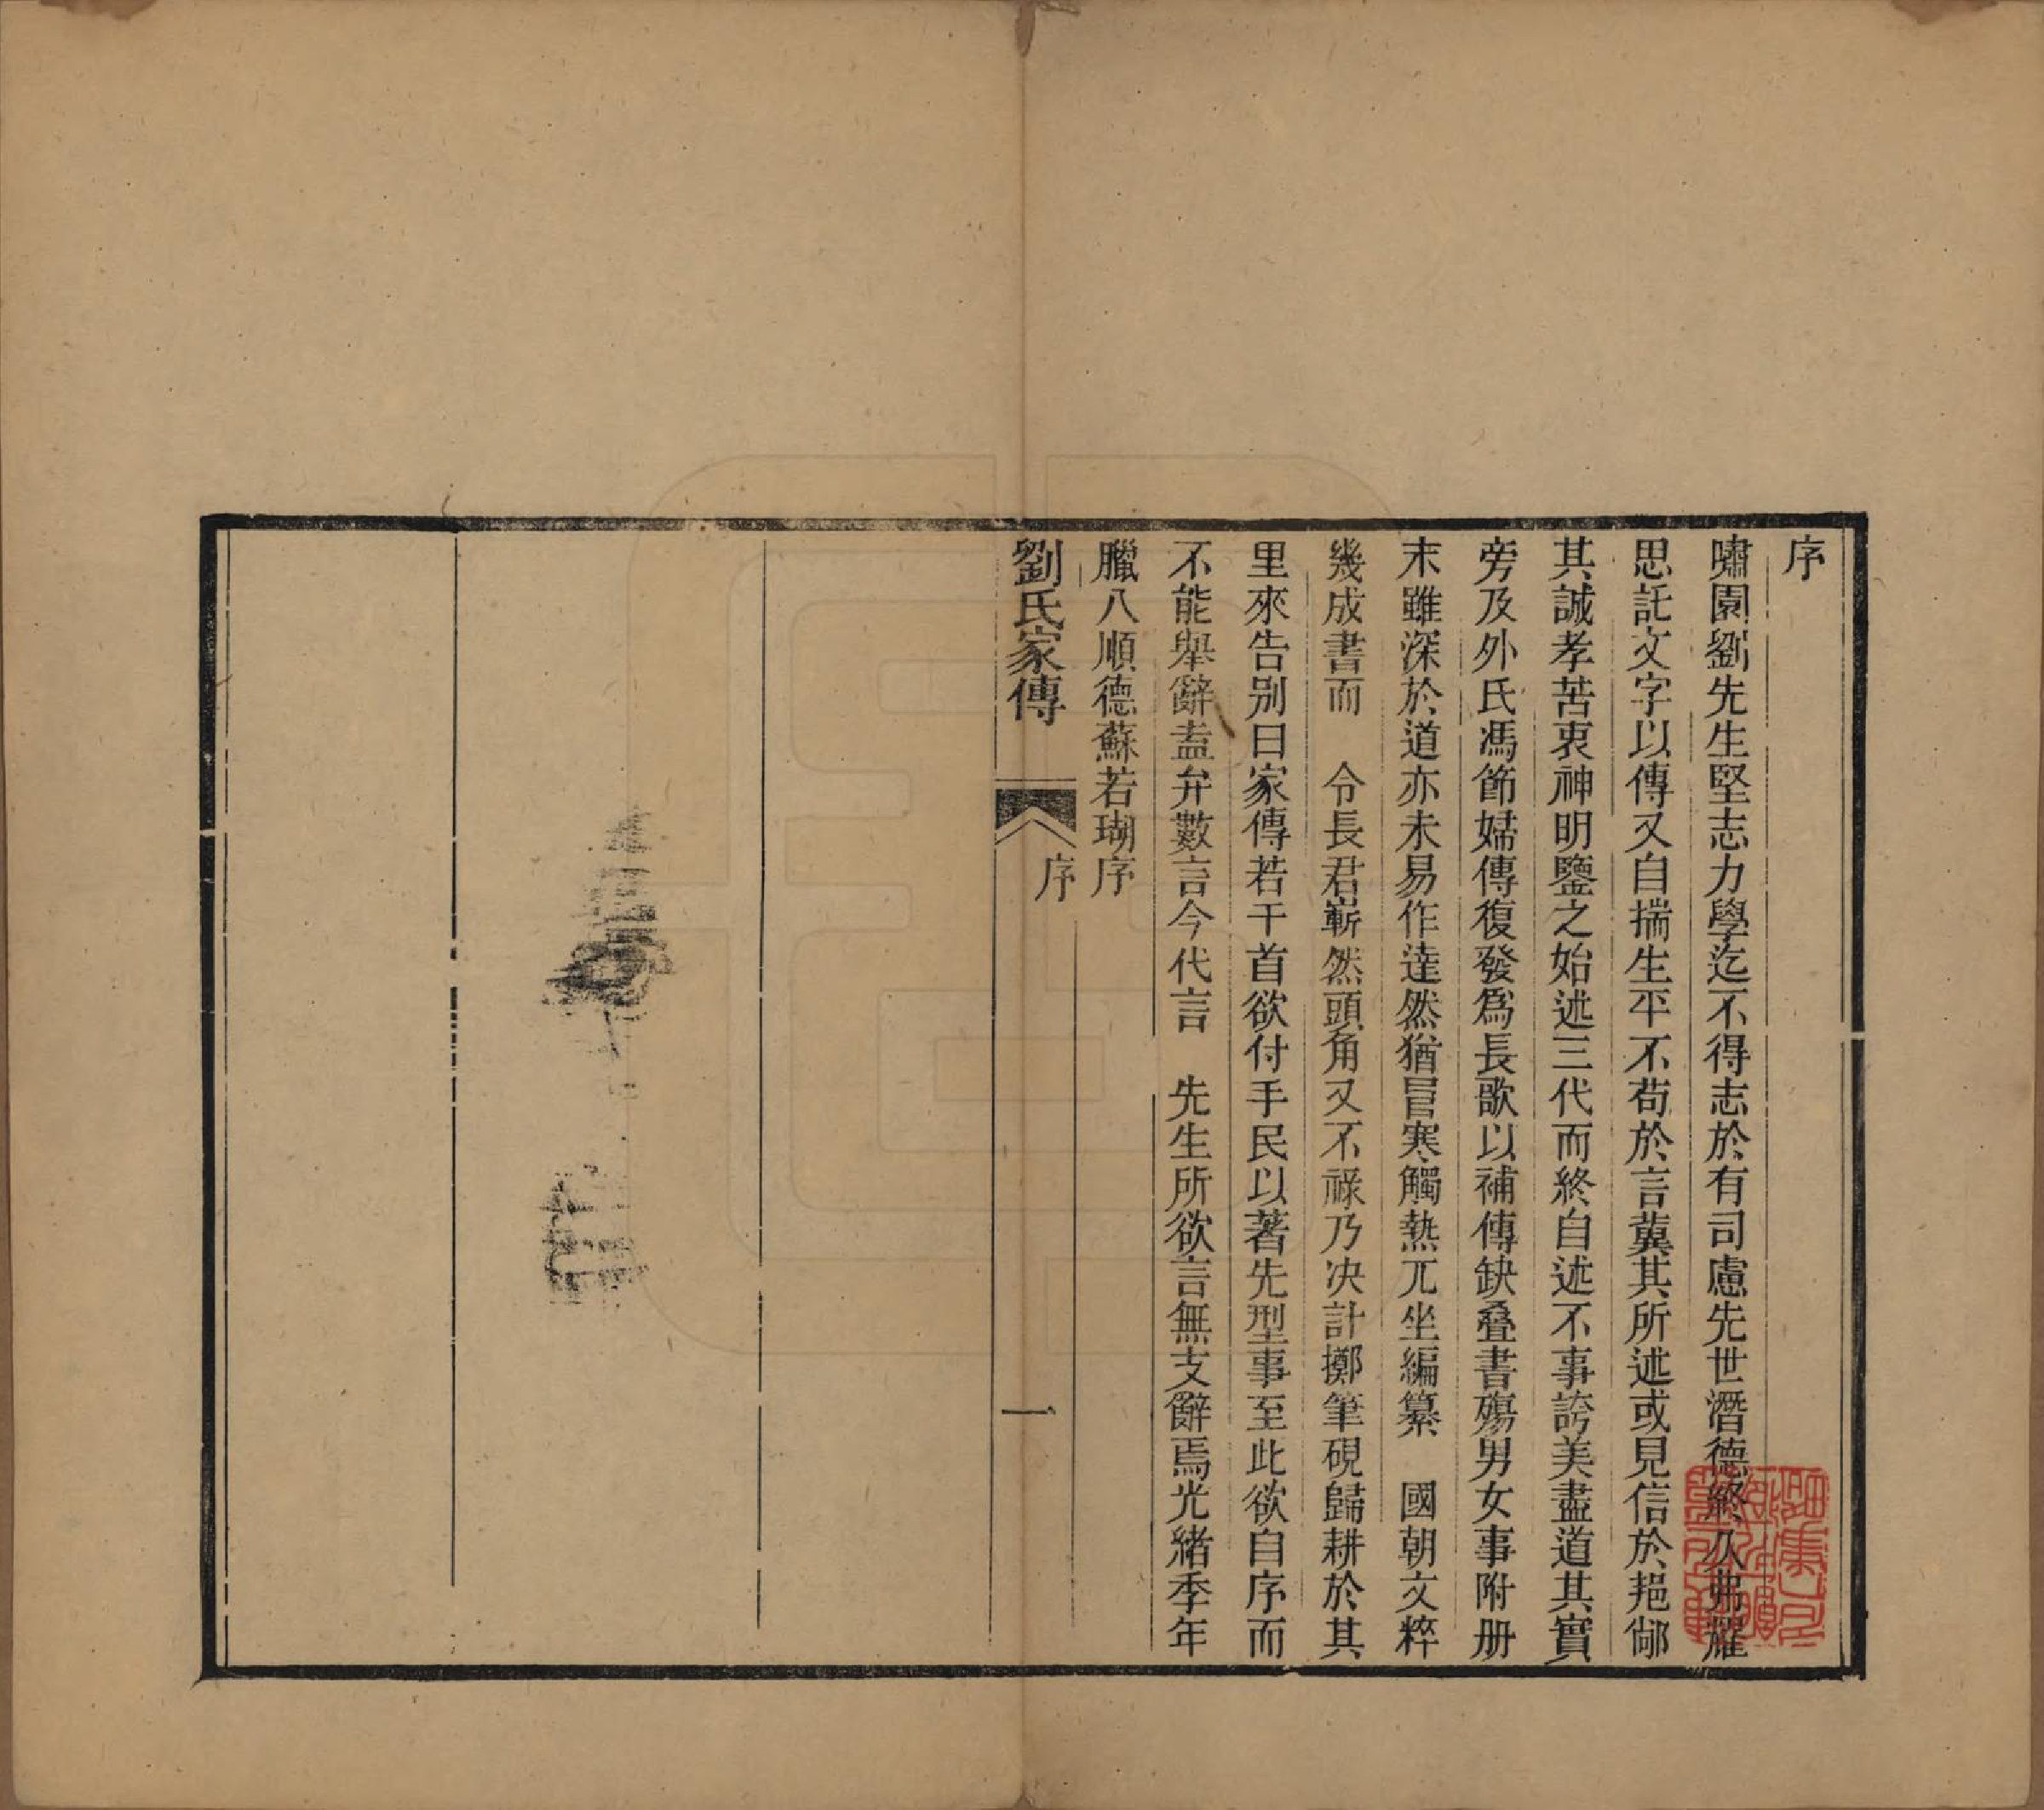 序
嘯園劉先生堅志力學迄不得志於有司慮先世潛德終以弗耀
思託文字以傳又自揣生平不苟於言冀其所述或見信於邦鄉
其誠孝苦衷神明鑒之始述三代而終自述不事誇美盡道其實
旁及外氏馮節婦傳復發爲長歌以補傳缺叠書殤男女事附册
末雖深於道亦未易作達然猶冒寒觸熱兀坐編纂　國朝文粹
幾成書而　令長君嶄然頭角又不祿乃决計擲筆硯歸耕於其
里來告别曰家傳若干首欲付手民以著先型事至此欲自序而
不能舉辭盍弁數言今代言　先生所欲言無支辭焉光緒季年
臘八順德蘇若瑚序
劉氏家傳
序
一